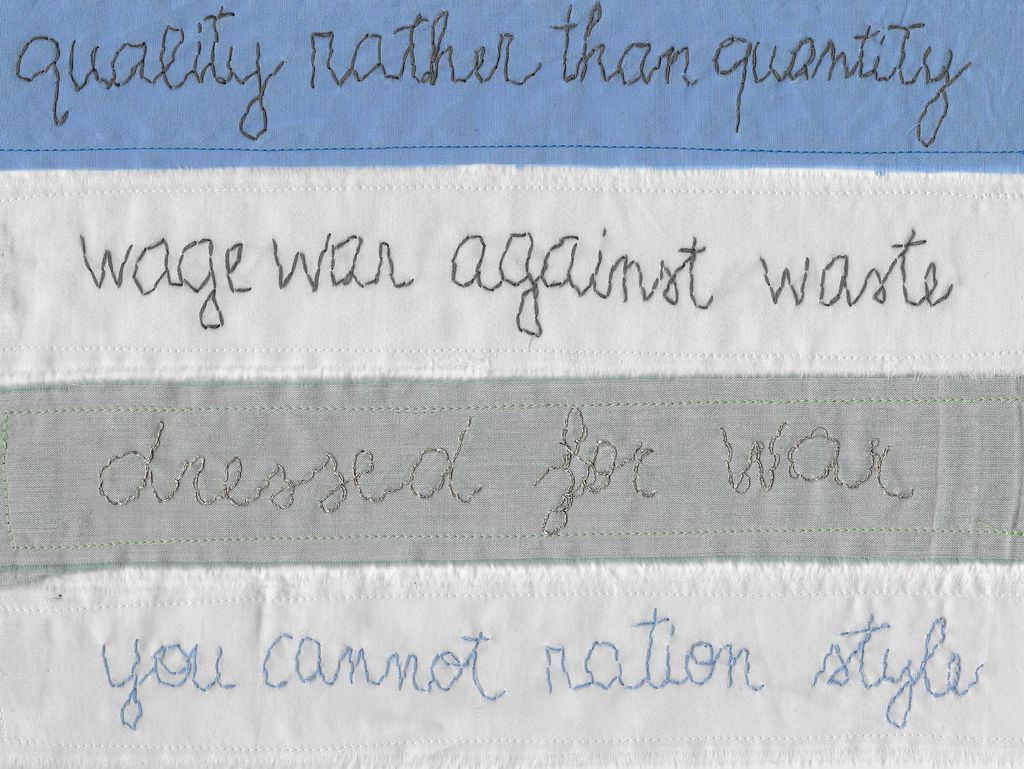 quality rather than quantity
wage war against waste
dressed for war
you cannot ration style